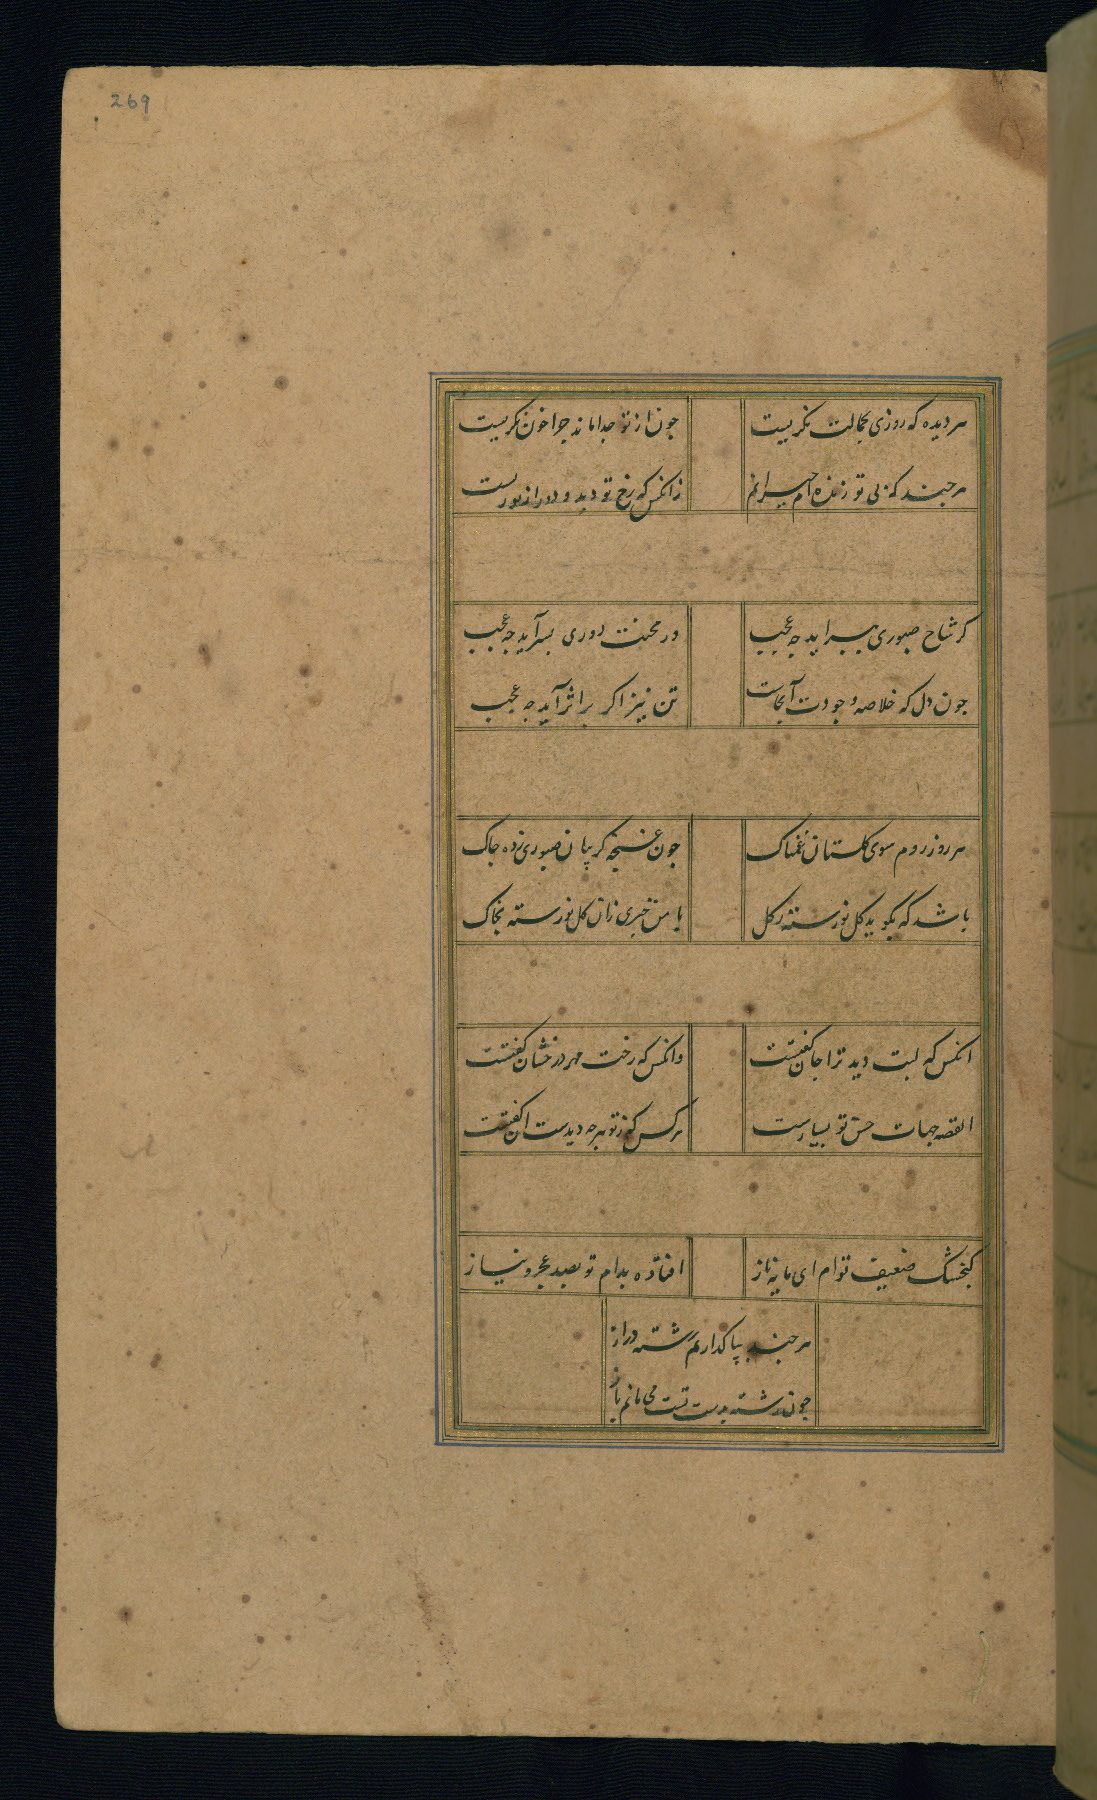 269
هر دیده که روزی بجمالت نکریست
چون از تو جدا ماند چرا خون نکریست
هر چند که بی تو زنده ام حیرانم
زانکس که رخ تو دید و دور از تو زیست
کر شاخ صبوری ببر آید چه عجب
ور محنت دوری بسر آید چه عجب
چون دل که خلاصه وجودت آنجاست
تن نیز اکر بر اثر آید چه عجب
هر روز روم سوی کلستان غمناک
چون غنچه کریبان صبوری زده چاک
باشد که بکوید کل نورسته ز کل
با من خبری زان کل نورسته بخاک
انکس که لبت دید ترا جان کفتست
وانکس که رخت مهر درخشان کفتست
القصه جهات حسن تو بسیارست
هر کس که ز تو هرچه دیدست ان کفتست
کنجشک ضعیف توام ای مایه ناز
افتاده بدام تو بصد عجز و نیاز
هر چند بپا کذاریم رشته دراز
چون رشته بدست تست می مانم باز